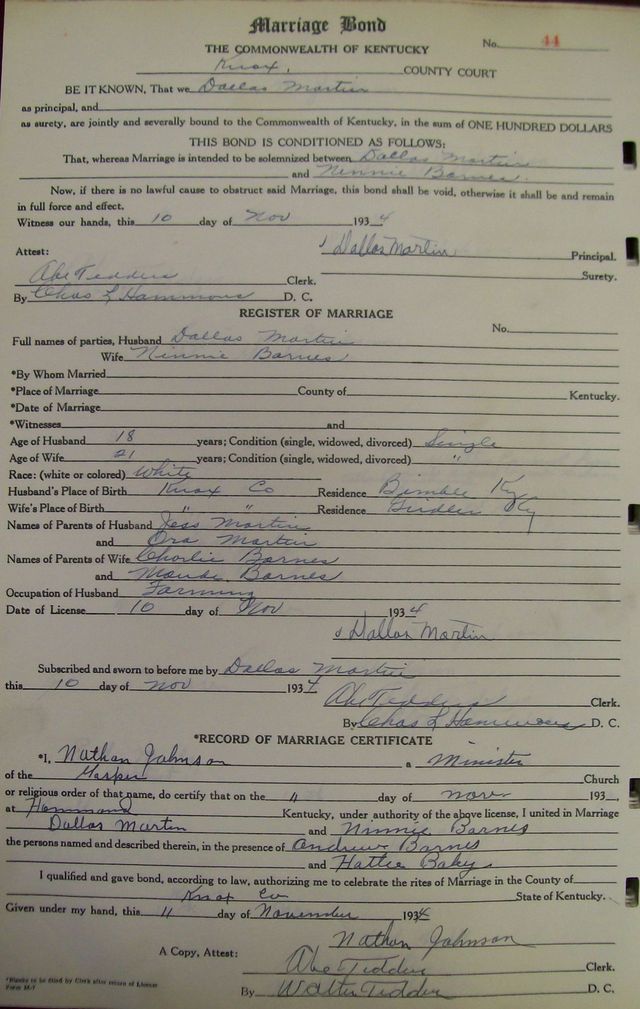 Marriage Bond
No. 44
THE COMMONWEALTH OF KENTUCKY
Knox, COUNTY COURT
BE IT KNOWN, That we Dallas Martin
as principal, and
as surety, are jointly and severally bound to the Commonwealth of Kentucky, in the sum of ONE HUNDRED DOLLARS
THIS BOND IS CONDITIONED AS FOLLOWS:
That, whereas Marriage is intended to be solemnized between Dallas Martin
and Ninnie Barnes.
Now, if there is no lawful cause to obstruct said Marriage, this bond shall be void, otherwise it shall be and remain
in full force and effect.
Witness our hands, this 10 day of Nov 1934
Attest: Dallas Martin Principal.
Abe Tedders Clerk. Surety.
By Chas L Hammons D. C.
REGISTER OF MARRIAGE
No.
Full names of parties, Husband Dallas Martin
Wife Ninnie Barnes
*By Whom Married
*Place of Marriage County of Kentucky.
*Date of Marriage
*Witnesses and
Age of Husband 18 years; Condition (single, widowed, divorced) Single
Age of Wife 21 years; Condition (single, widowed, divorced) "
Race: (white or colored) White
Husband's Place of Birth Knox Co Residence Bimble Ky
Wife's Place of Birth " " Residence Girdler Ky
Names of Parents of Husband Jess Martin
and Ora Martin
Names of Parents of Wife Charlie Barnes
and Maude Barnes
Occupation of Husband Farming
Date of License 10 day of Nov 1934
Dallas Martin
Subscribed and sworn to before me by Dallas Martin
this 10 day of Nov 1934
Abe Tedders Clerk.
By Chas L Hammons D. C.
*RECORD OF MARRIAGE CERTIFICATE
*I, Nathan Johnson a Minister
of the Church
or religious order of that name, do certify that on the 11 day of Nov 193 ,
at Hammond Kentucky, under authority of the above license, I united in Marriage
Dallas Martin and Ninnie Barnes
the persons named and described therein, in the presence of Andrew Barnes
and Hattie Bakey
I qualified and gave bond, according to law, authorizing me to celebrate the rites of Marriage in the County of
Knox Co State of Kentucky.
Given under my hand, this 11 day of November 1934
Nathan Johnson
A Copy, Attest: Abe Tedders Clerk.
By Walter Tedder D. C.
*Blanks to be filled by Clerk after return of License
Form M-7